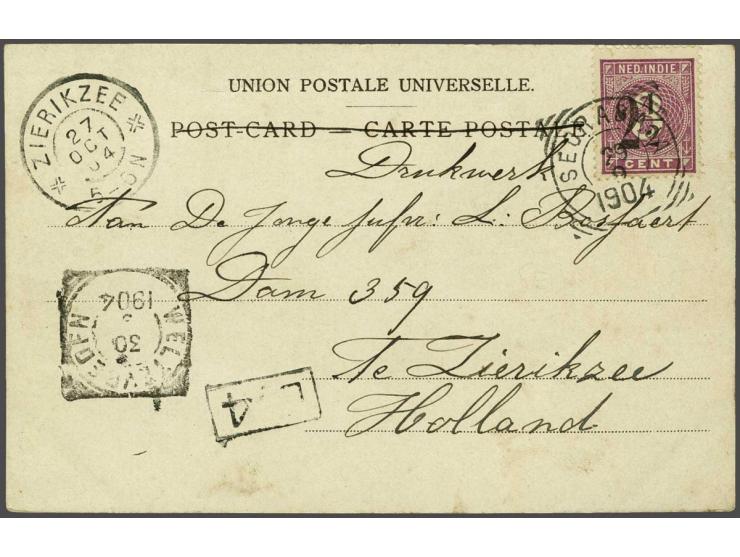 UNION POSTALE UNIVERSELLE.
POST-CARD = CARTE POSTALE
NED. INDIE
CENT
1904
ZIERIKZEE
27
OCT
04
Drukwerk
Aan De Jonge Jufr: L: Bosfaert
Dam 359
Te Zierikzee
Holland
1904
30
4